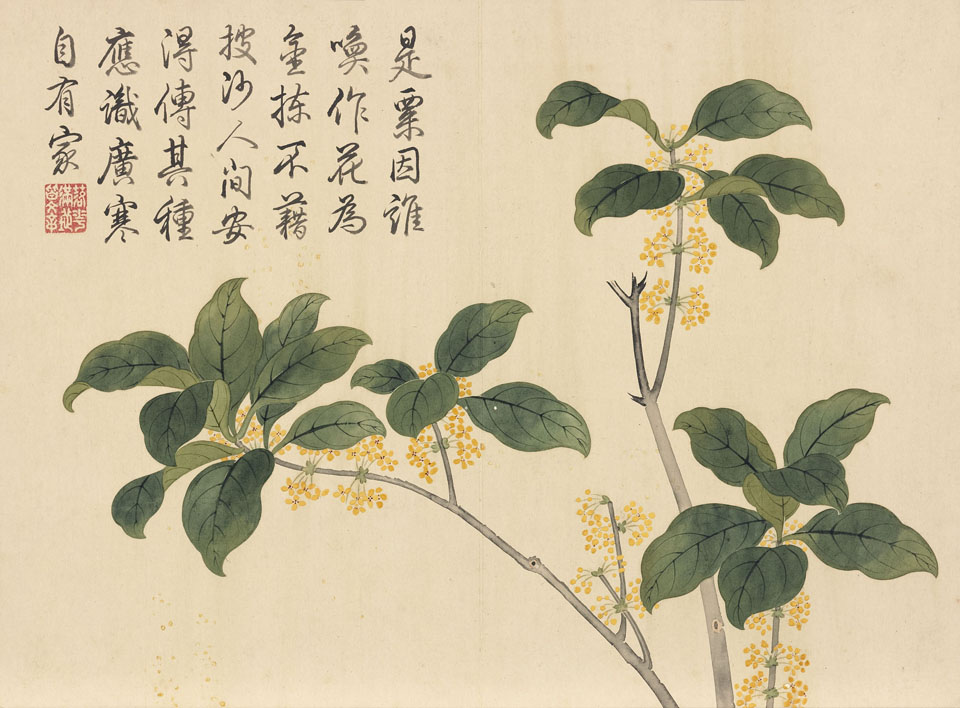 是粟因誰
喚作花為
金揀不藉
披沙人間安
得傳其種
應識廣寒
自有家